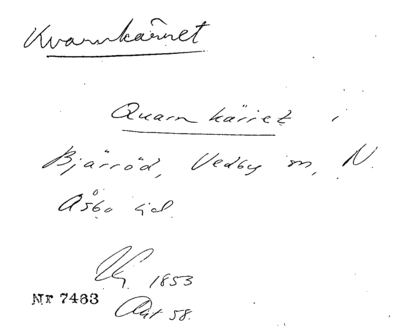 Kvarnkärret
Quarn kärret i
Bjärröd, Vedby sn, N.
Åsbo hd.
1853
Nr 7483
Akt 58.